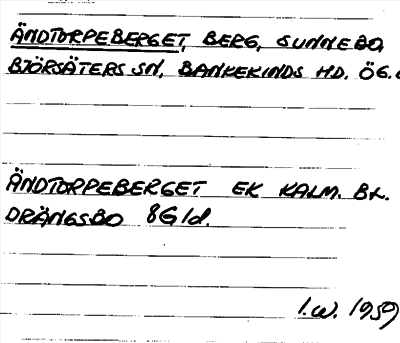 ÄNDTORPEBERGET, BERG, SUNNEBO,
BJÖRSÄTERS SN, BANKEKINDS HD. ÖG.
ÄNDTORPEBERGET EK KALM. BL.
DRÄNGSBO 8G1d.
I.W. 1959